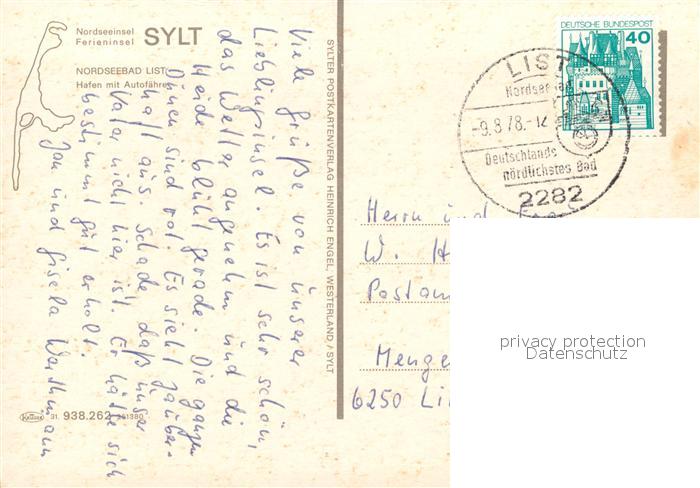 Nordseeinsel
Ferieninsel SYLT
NORDSEEBAD LIST
Hafen mit Autofähre
Viele Grüße von unserer
Lieblingsinsel. Es ist sehr schön,
das Wetter angenehm und die
Heide blüht gerade. Die ganzen
Dünen sind rot. Es sieht zauber-
haft aus. Schade, daß unser
Vater nicht hier ist. Er hätte sich
bestimmt gut erholt.
Jan und Gisela
Krüger 31. 938.262
SYLTER POSTKARTENVERLAG HEINRICH ENGEL, WESTERLAND / SYLT
DEUTSCHE BUNDESPOST
40
LIST
Nordseebad
-9.8.78.-12
Deutschlands
nördlichstes Bad
2282
Herrn und
W. H
Postam
Menge
6250 Li
privacy protection
Datenschutz